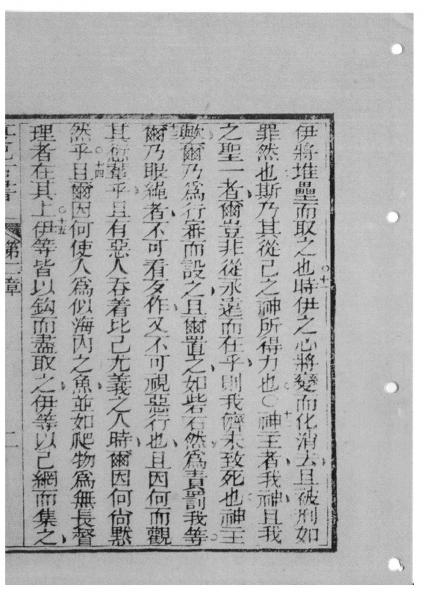 伊將堆壘而取之也時伊之心將變而化消去且被刑如
罪然也斯乃其從己之神所得力也○神主者我神且我
之聖一者爾豈非從永遠而在乎則我儕未致死也神主
歟爾乃為行審而設之且爾置之如砦石然為責罰我等
爾乃眼繩者不可看歹作又不可視惡行也且因何而觀
其愆輩乎且有惡人吞着比己尤義之人時爾因何尙默
然乎且爾因何使人為似海內之魚並如爬物為無長督
理者在其上伊等皆以鈎而盡取之伊等以己網而集之
第一章